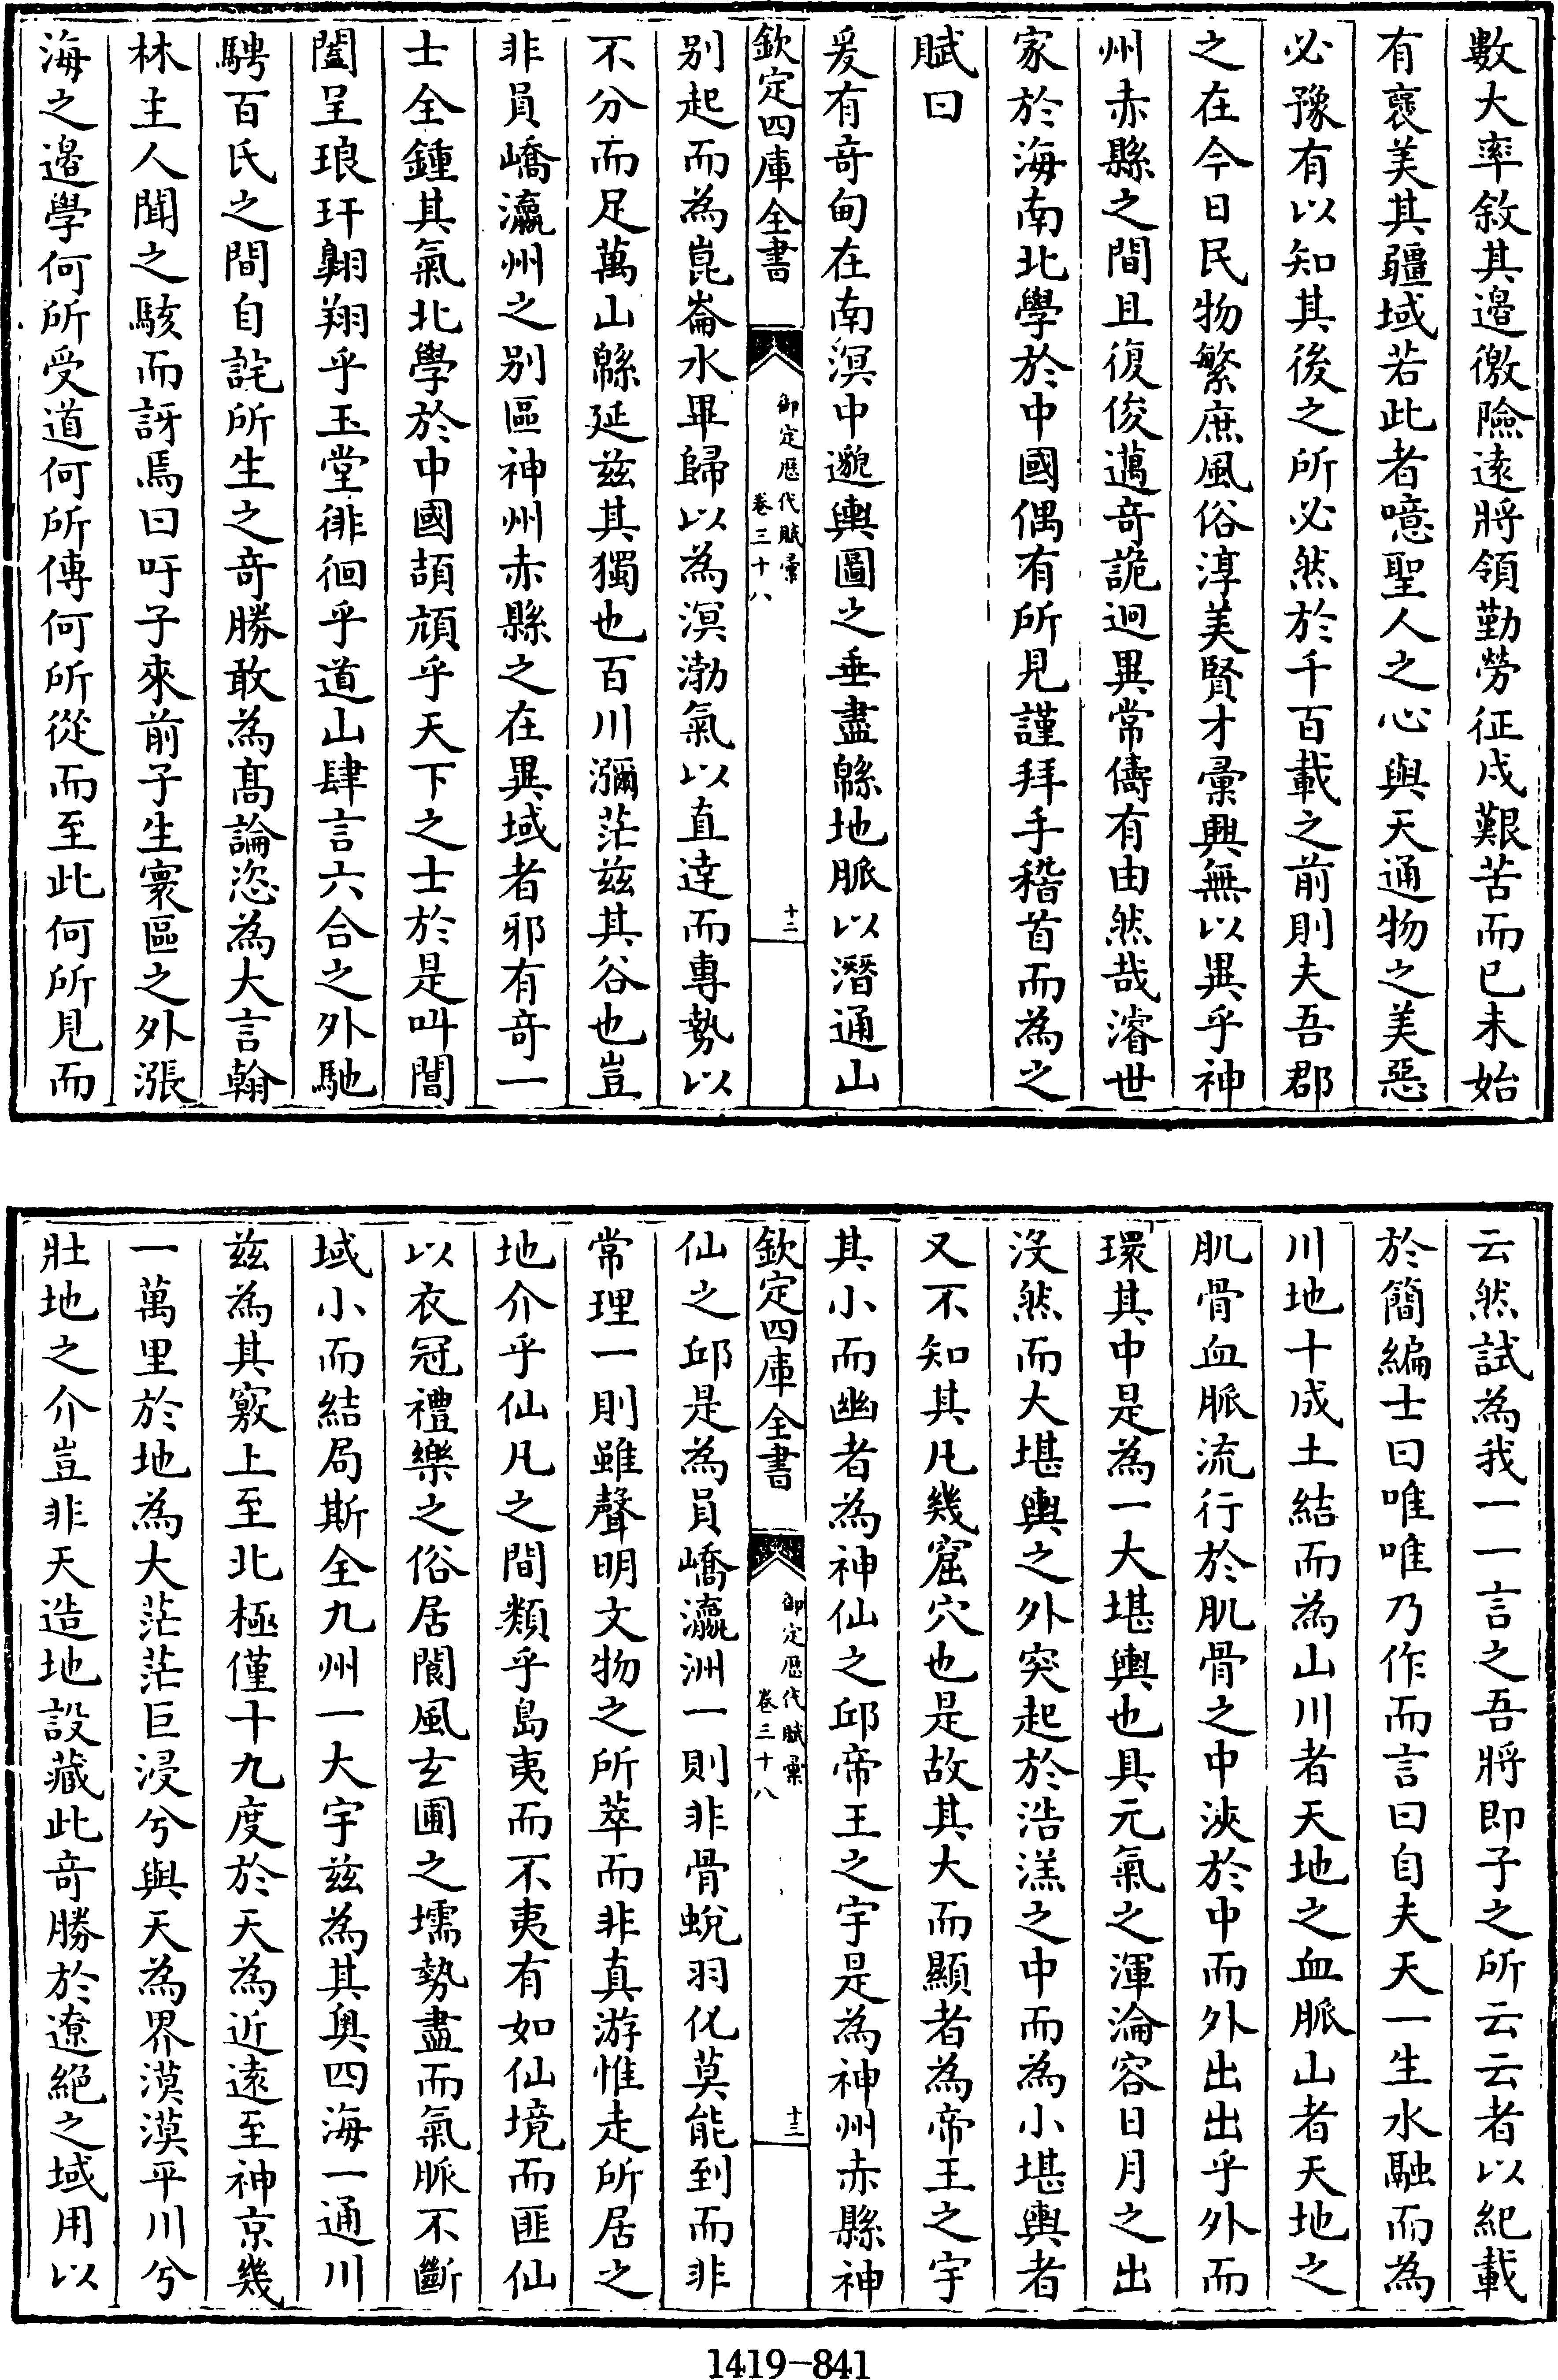 數大率敘其邉徼險逺將領勤勞征戍艱苦而已未始
有襃美其疆域若此者噫聖人之心與天通物之美惡
必豫有以知其後之所必然於千百載之前則夫吾郡
之在今日民物繁庶風俗淳美賢才彚興無以異乎神
州赤縣之間且復俊邁竒詭迥異常儔有由然哉濬世
家於海南北學於中國偶有所見謹拜手稽首而為之
賦曰
爰有竒甸在南溟中邈輿圖之垂盡緜地脈以潛通山
欽定四庫全書
御定歴代賦彙
卷三十八
十二
别起而為崑崙水畢歸以為溟渤氣以直達而專勢以
不分而足萬山緜延兹其獨也百川瀰茫兹其谷也豈
非員嶠瀛州之别區神州赤縣之在異域者邪有竒一
士全鍾其氣北學於中國頡頏乎天下之士於是叫閶
闔呈琅玕翺翔乎玉堂徘徊乎道山肆言六合之外馳
騁百氏之間自詫所生之竒勝敢為髙論恣為大言翰
林主人聞之駭而訝焉曰吁子來前子生寰區之外漲
海之邉學何所受道何所傳何所從而至此何所見而
云然試為我一一言之吾將即子之所云云者以紀載
於簡編士曰唯唯乃作而言曰自夫天一生水融而為
川地十成土結而為山川者天地之血脈山者天地之
肌骨血脈流行於肌骨之中浹於中而外出出乎外而
環其中是為一大堪輿也具元氣之渾淪容日月之出
没然而大堪輿之外突起於浩溔之中而為小堪輿者
又不知其凡幾窟穴也是故其大而顯者為帝王之宇
其小而幽者為神仙之邱帝王之宇是為神州赤縣神
欽定四庫全書
御定歴代賦彙
卷三十八
十三
仙之邱是為員嶠瀛洲一則非骨蛻羽化莫能到而非
常理一則雖聲明文物之所萃而非真游惟走所居之
地介乎仙凡之間類乎島夷而不夷有如仙境而匪仙
以衣冠禮樂之俗居閬風玄圃之壖勢盡而氣脈不斷
域小而結局斯全九州一大宇兹為其奥四海一通川
兹為其竅上至北極僅十九度於天為近逺至神京幾
一萬里於地為大茫茫巨浸兮與天為界漠漠平川兮
壯地之介豈非天造地設藏此竒勝於遼絶之域用以
1419-841